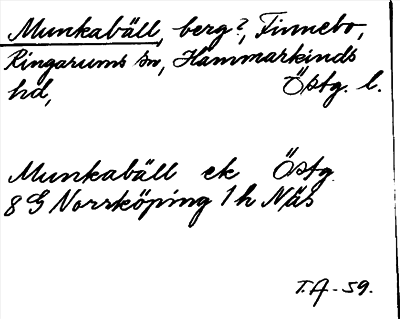 Munkabäll, berg?, Finnebo,
Ringarums sn, Hammarkinds
hd, Östg. l.
Munkabäll ek Östg.
8G Norrköping 1h Näs
T.A-59.